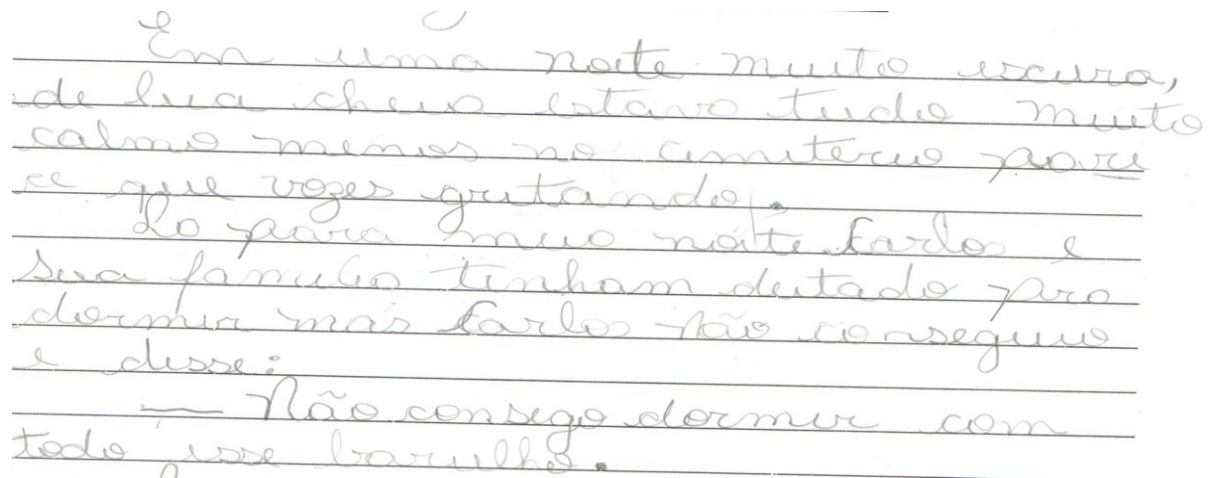 Em uma noite muito escura,
de lua cheia estava tudo muito
calmo menos no cemitério pare
ce que vozes gritando.
Lo para meia noite Carlos e
sua familia tinham deitado pra
dormir mas Carlos não conseguiu
e disse:
— Não consigo dormir com
todo esse barulho.